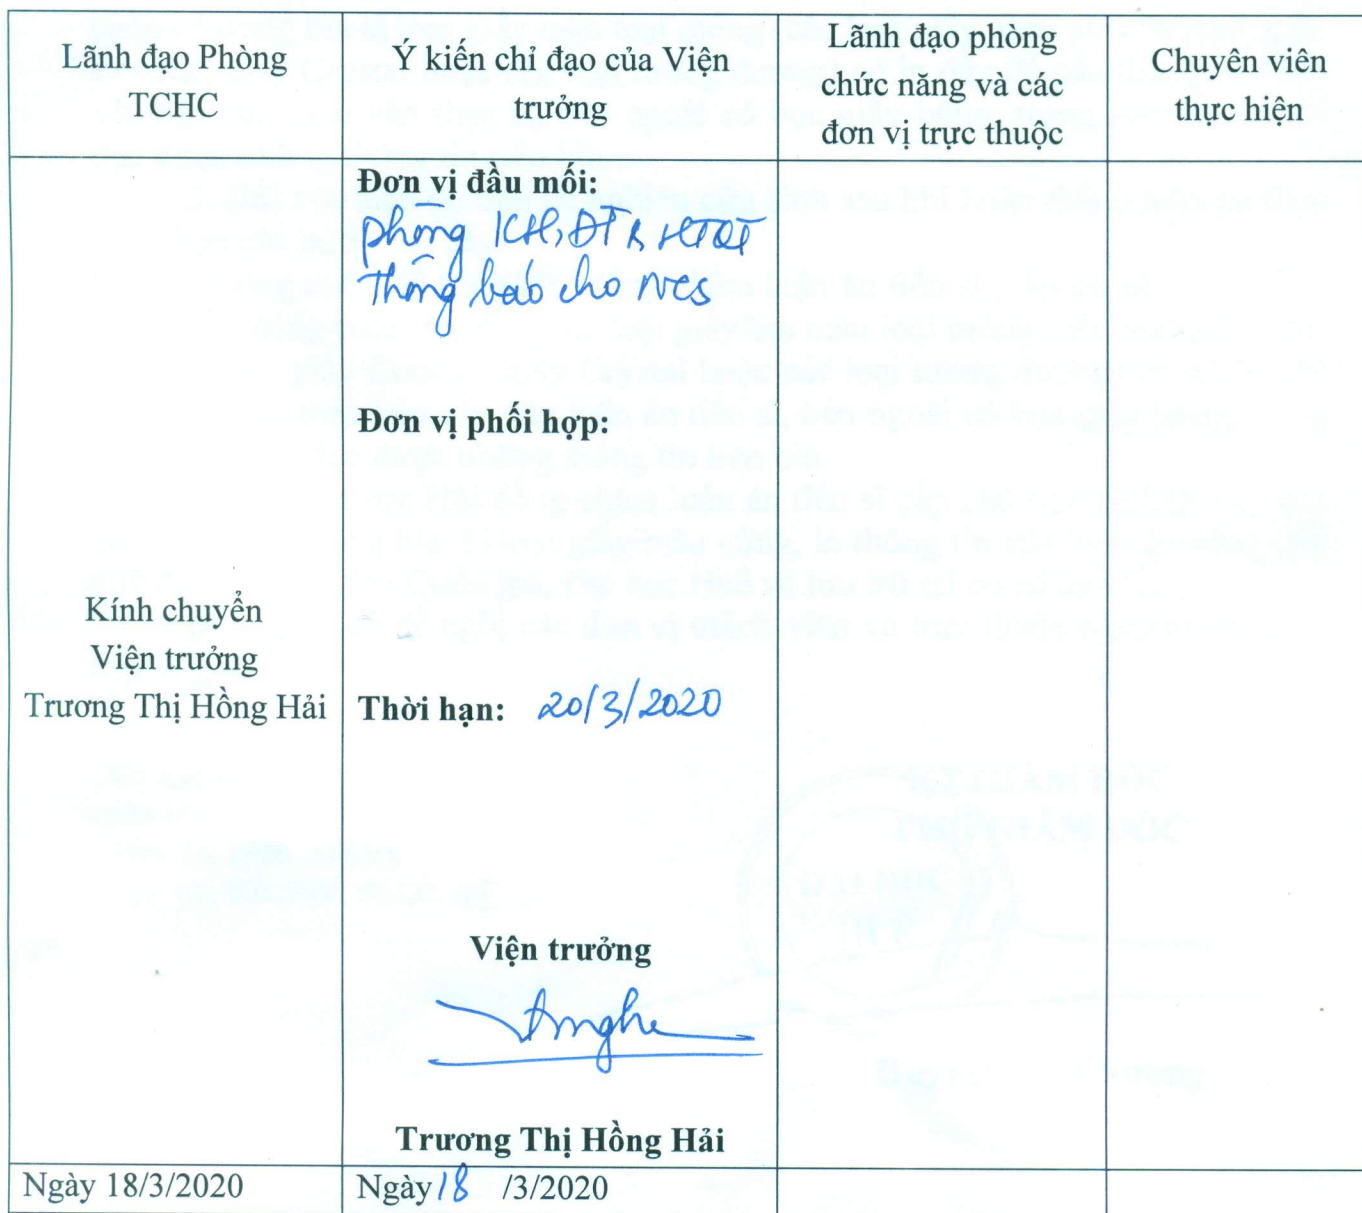 Lãnh đạo Phòng
TCHC
Ý kiến chỉ đạo của Viện
trưởng
Lãnh đạo phòng
chức năng và các
đơn vị trực thuộc
Chuyên viên
thực hiện
Kính chuyển
Viện trưởng
Trương Thị Hồng Hải
Đơn vị đầu mối:
phòng KH, ĐT & HTQT
Thông báo cho NCS
Đơn vị phối hợp:
Thời hạn: 20/3/2020
Viện trưởng
Trương Thị Hồng Hải
Ngày 18/3/2020
Ngày 18 /3/2020